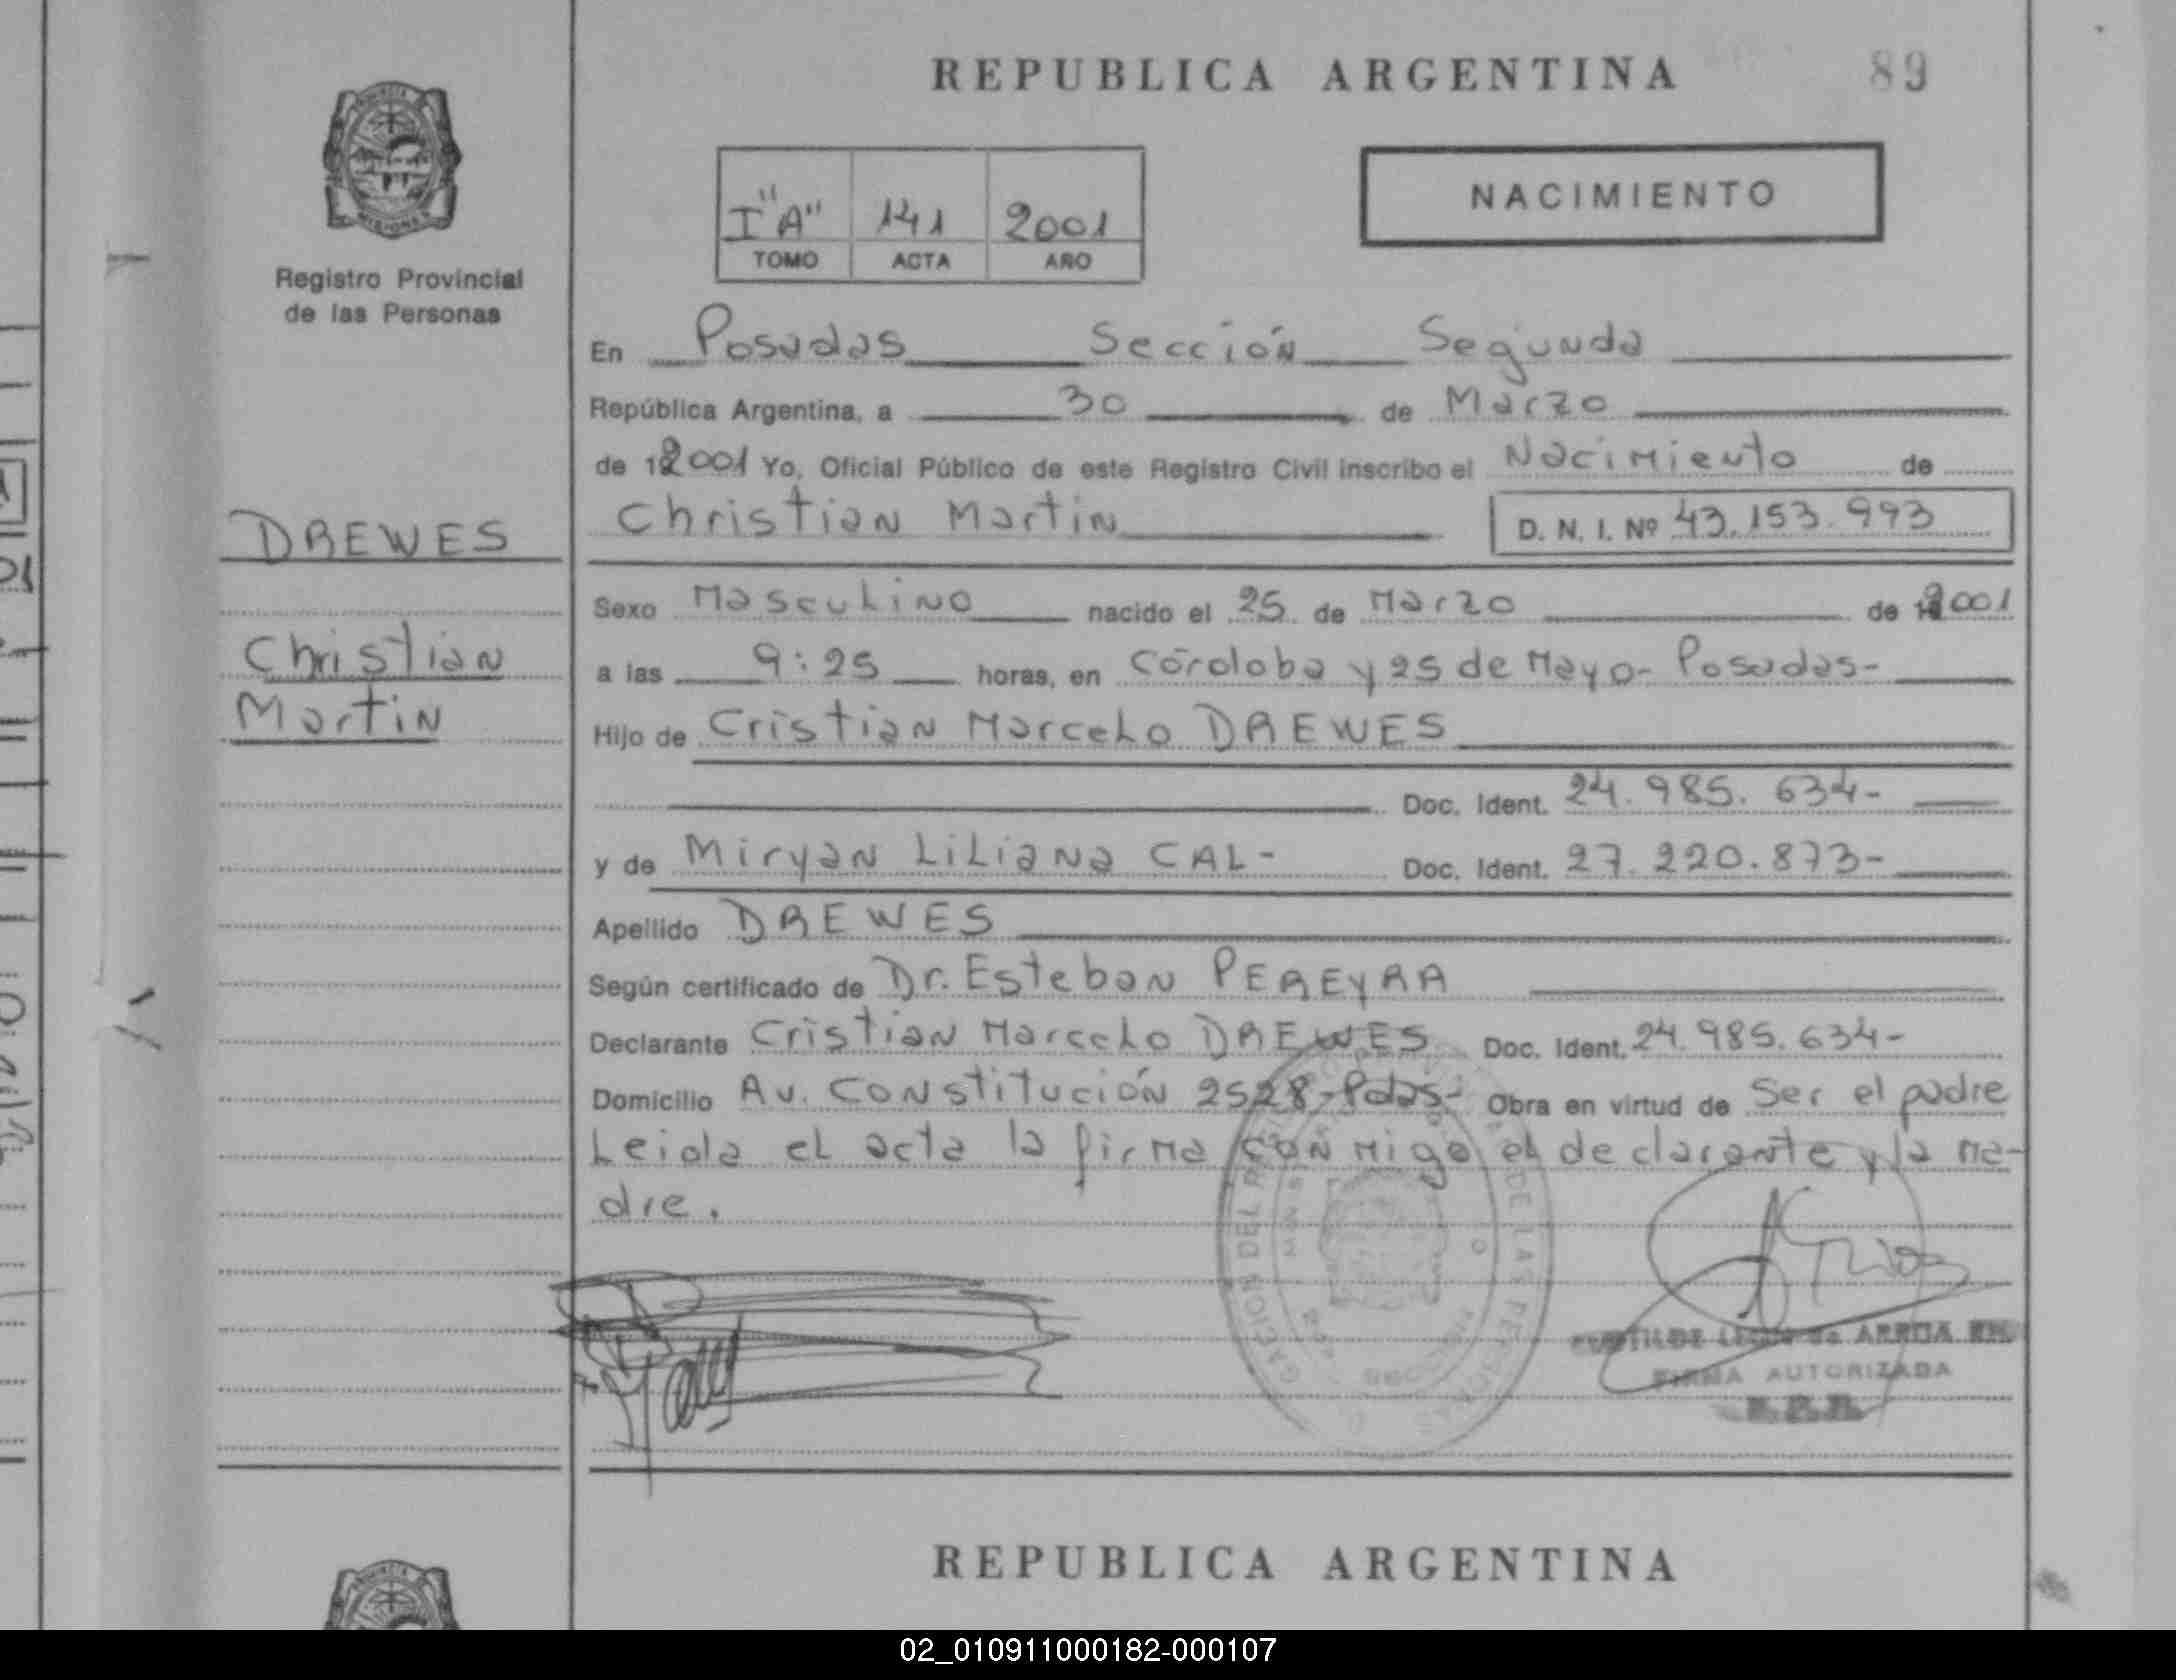 REPUBLICA ARGENTINA
89
PROVINCIA
MISIONES
Registro Provincial
de las Personas
I "A" 141 2001
TOMO ACTA AÑO
NACIMIENTO
En Posadas Sección Segunda
República Argentina, a 30 de Marzo
de 2001 Yo, Oficial Público de este Registro Civil inscribo el Nacimiento de
Christian Martin D. N. I. Nº 43.153.993
DREWES
Christian
Martin
Sexo Masculino nacido el 25 de Marzo de 2001
a las 9:25 horas, en Córdoba y 25 de Mayo- Posadas-
Hijo de Cristian Marcelo DREWES
Doc. Ident. 24.985.634-
y de Miryan Liliana CAL- Doc. Ident. 27.220.873-
Apellido DREWES
Según certificado de Dr. Esteban PEREYRA
Declarante Cristian Marcelo DREWES Doc. Ident. 24.985.634-
Domicilio Av. Constitución 2528-Pdas- Obra en virtud de Ser el padre
Leida el acta la firma conmigo el declarante y la ma-
dre.
FIRMA AUTORIZADA
REPUBLICA ARGENTINA
02_010911000182-000107